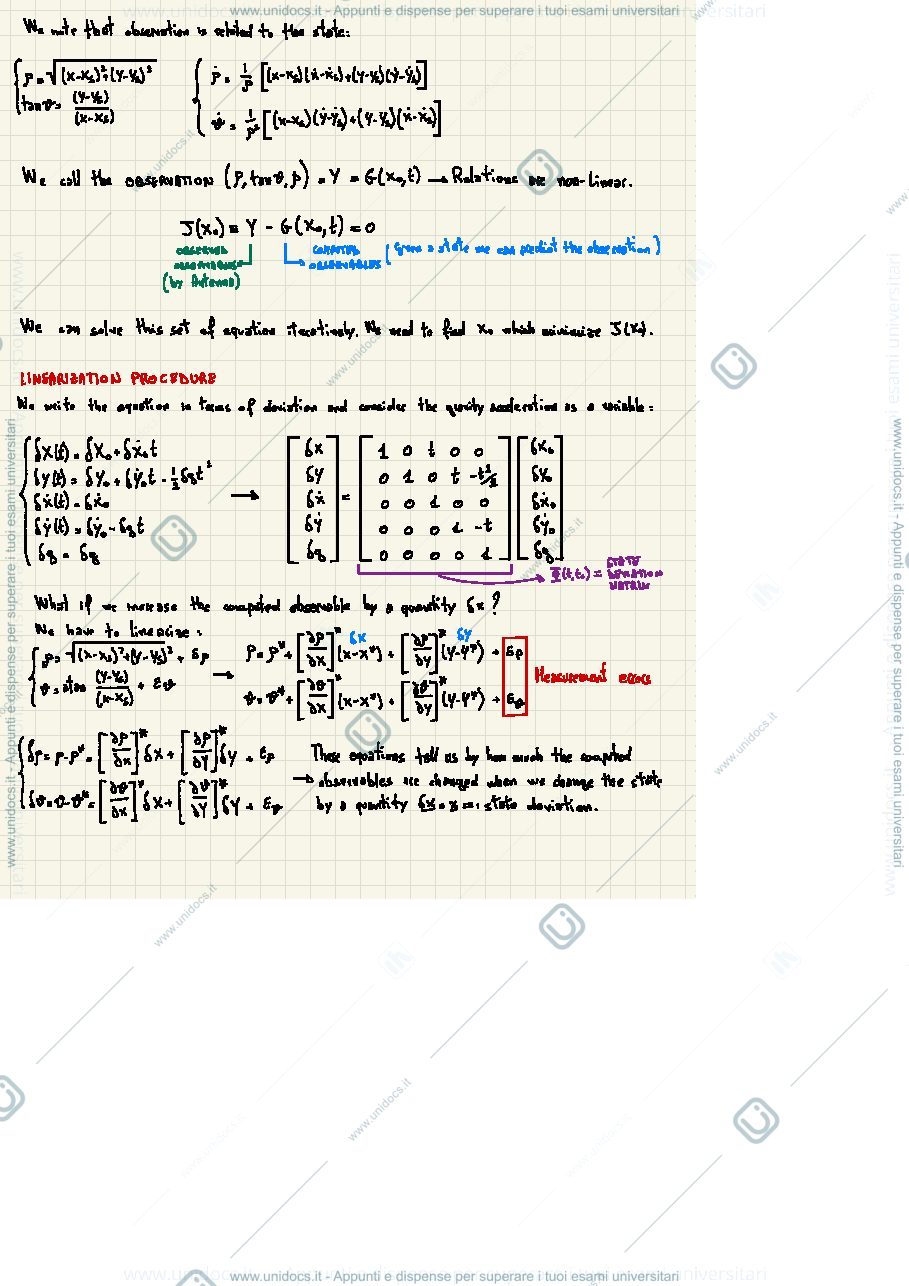 www.unidocs.it - Appunti e dispense per superare i tuoi esami universitari
We note that observation is related to the state:
ρ = √((x-xs)²+(y-ys)²)
tanθ = (y-ys)/(x-xs)
ρ̇ = 1/ρ [(x-xs)(ẋ-ẋs)+(y-ys)(ẏ-ẏs)]
θ̇ = 1/ρ² [(x-xs)(ẏ-ẏs)+(y-ys)(ẋ-ẋs)]
We call the OBSERVATION (ρ, tanθ, ρ̇) = Y = G(x₀,t) → Relations are non-linear.
J(x₀) = Y - G(x₀,t) = 0
OBSERVED OBSERVABLES (by Antenna)
COMPUTED OBSERVABLES (given a state we can predict the observation)
We can solve this set of equation iteratively. We need to find x₀ which minimize J(x₀).
LINEARIZATION PROCEDURE
We write the equation in terms of deviation and consider the gravity acceleration as a variable:
δx(t) = δx₀ + δẋ₀t
δy(t) = δy₀ + δẏ₀t - ½δgt²
δẋ(t) = δẋ₀
δẏ(t) = δẏ₀ - δgt
δg = δg
→
[δx δy δẋ δẏ δg] =
1 0 t 0 0
0 1 0 t -t²/2
0 0 1 0 0
0 0 0 1 -t
0 0 0 0 1
[δx₀ δy₀ δẋ₀ δẏ₀ δg]
Φ(t,t₀) = STATE DEVIATION MATRIX
What if we increase the computed observable by a quantity δx?
We have to linearize:
ρ = √((x-xs)²+(y-ys)²) + ερ → ρ = ρ* + [∂ρ/∂x]*(x-x*) + [∂ρ/∂y]*(y-y*) + ερ
θ = atan (y-ys)/(x-xs) + εθ → θ = θ* + [∂θ/∂x]*(x-x*) + [∂θ/∂y]*(y-y*) + εθ
δx δy
Measurement errors
δρ = ρ-ρ* = [∂ρ/∂x]* δx + [∂ρ/∂y]* δy + ερ
δθ = θ-θ* = [∂θ/∂x]* δx + [∂θ/∂y]* δy + εθ
→ These equations tell us by how much the computed
observables are changed when we change the state
by a quantity δx = x =: state deviation.
www.unidocs.it - Appunti e dispense per superare i tuoi esami universitari